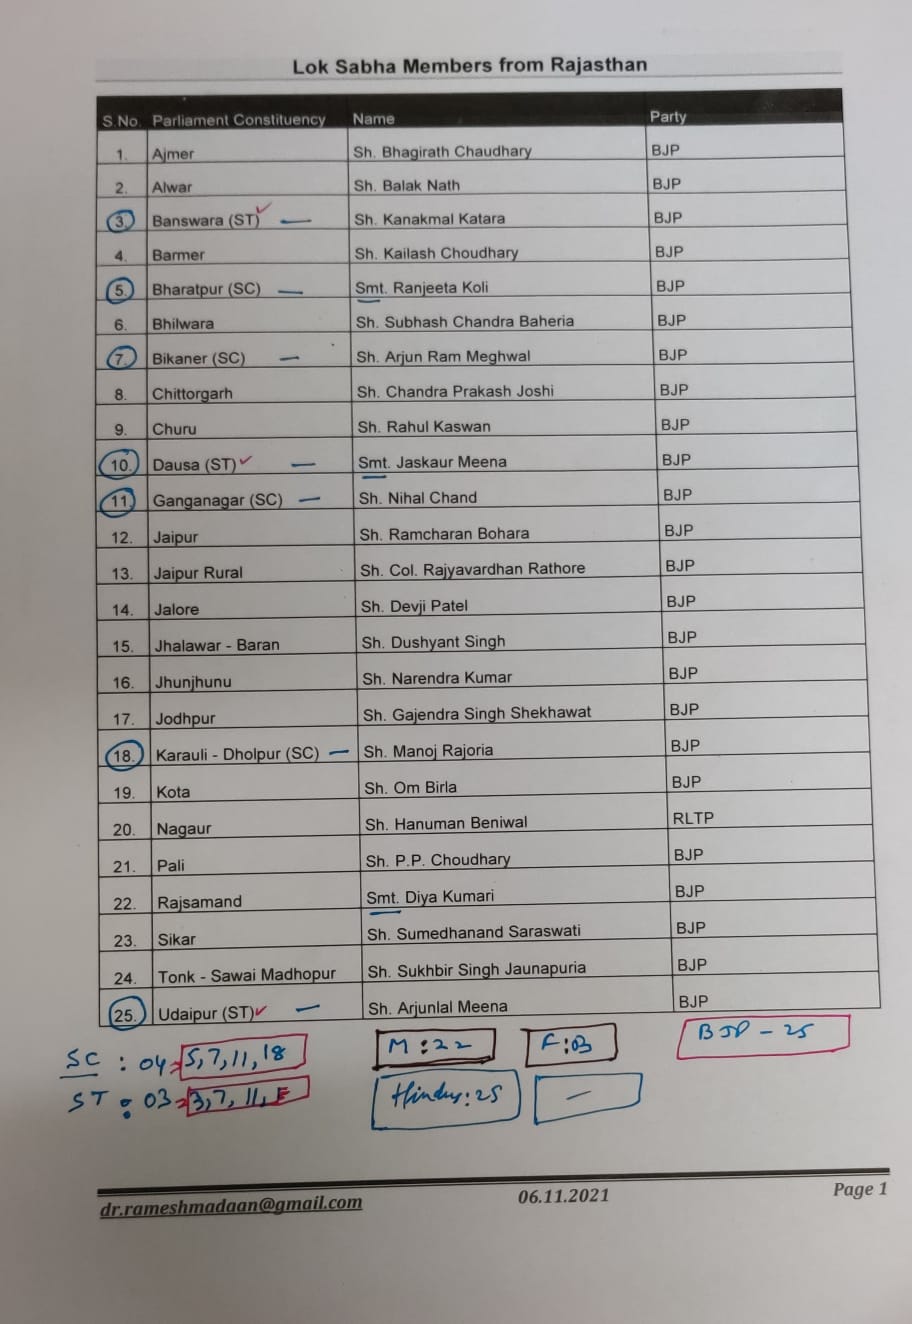 Lok Sabha Members from Rajasthan
S.No. Parliament Constituency Name Party
1. Ajmer Sh. Bhagirath Chaudhary BJP
2. Alwar Sh. Balak Nath BJP
3. Banswara (ST) Sh. Kanakmal Katara BJP
4. Barmer Sh. Kailash Choudhary BJP
5. Bharatpur (SC) Smt. Ranjeeta Koli BJP
6. Bhilwara Sh. Subhash Chandra Baheria BJP
7. Bikaner (SC) Sh. Arjun Ram Meghwal BJP
8. Chittorgarh Sh. Chandra Prakash Joshi BJP
9. Churu Sh. Rahul Kaswan BJP
10. Dausa (ST) Smt. Jaskaur Meena BJP
11. Ganganagar (SC) Sh. Nihal Chand BJP
12. Jaipur Sh. Ramcharan Bohara BJP
13. Jaipur Rural Sh. Col. Rajyavardhan Rathore BJP
14. Jalore Sh. Devji Patel BJP
15. Jhalawar - Baran Sh. Dushyant Singh BJP
16. Jhunjhunu Sh. Narendra Kumar BJP
17. Jodhpur Sh. Gajendra Singh Shekhawat BJP
18. Karauli - Dholpur (SC) Sh. Manoj Rajoria BJP
19. Kota Sh. Om Birla BJP
20. Nagaur Sh. Hanuman Beniwal RLTP
21. Pali Sh. P.P. Choudhary BJP
22. Rajsamand Smt. Diya Kumari BJP
23. Sikar Sh. Sumedhanand Saraswati BJP
24. Tonk - Sawai Madhopur Sh. Sukhbir Singh Jaunapuria BJP
25. Udaipur (ST) Sh. Arjunlal Meena BJP
SC : 04 5,7,11,18 M : 22 F : BJP - 25
ST : 03 3,7,11, Hindu : 25 -
dr.rameshmadaan@gmail.com 06.11.2021 Page 1